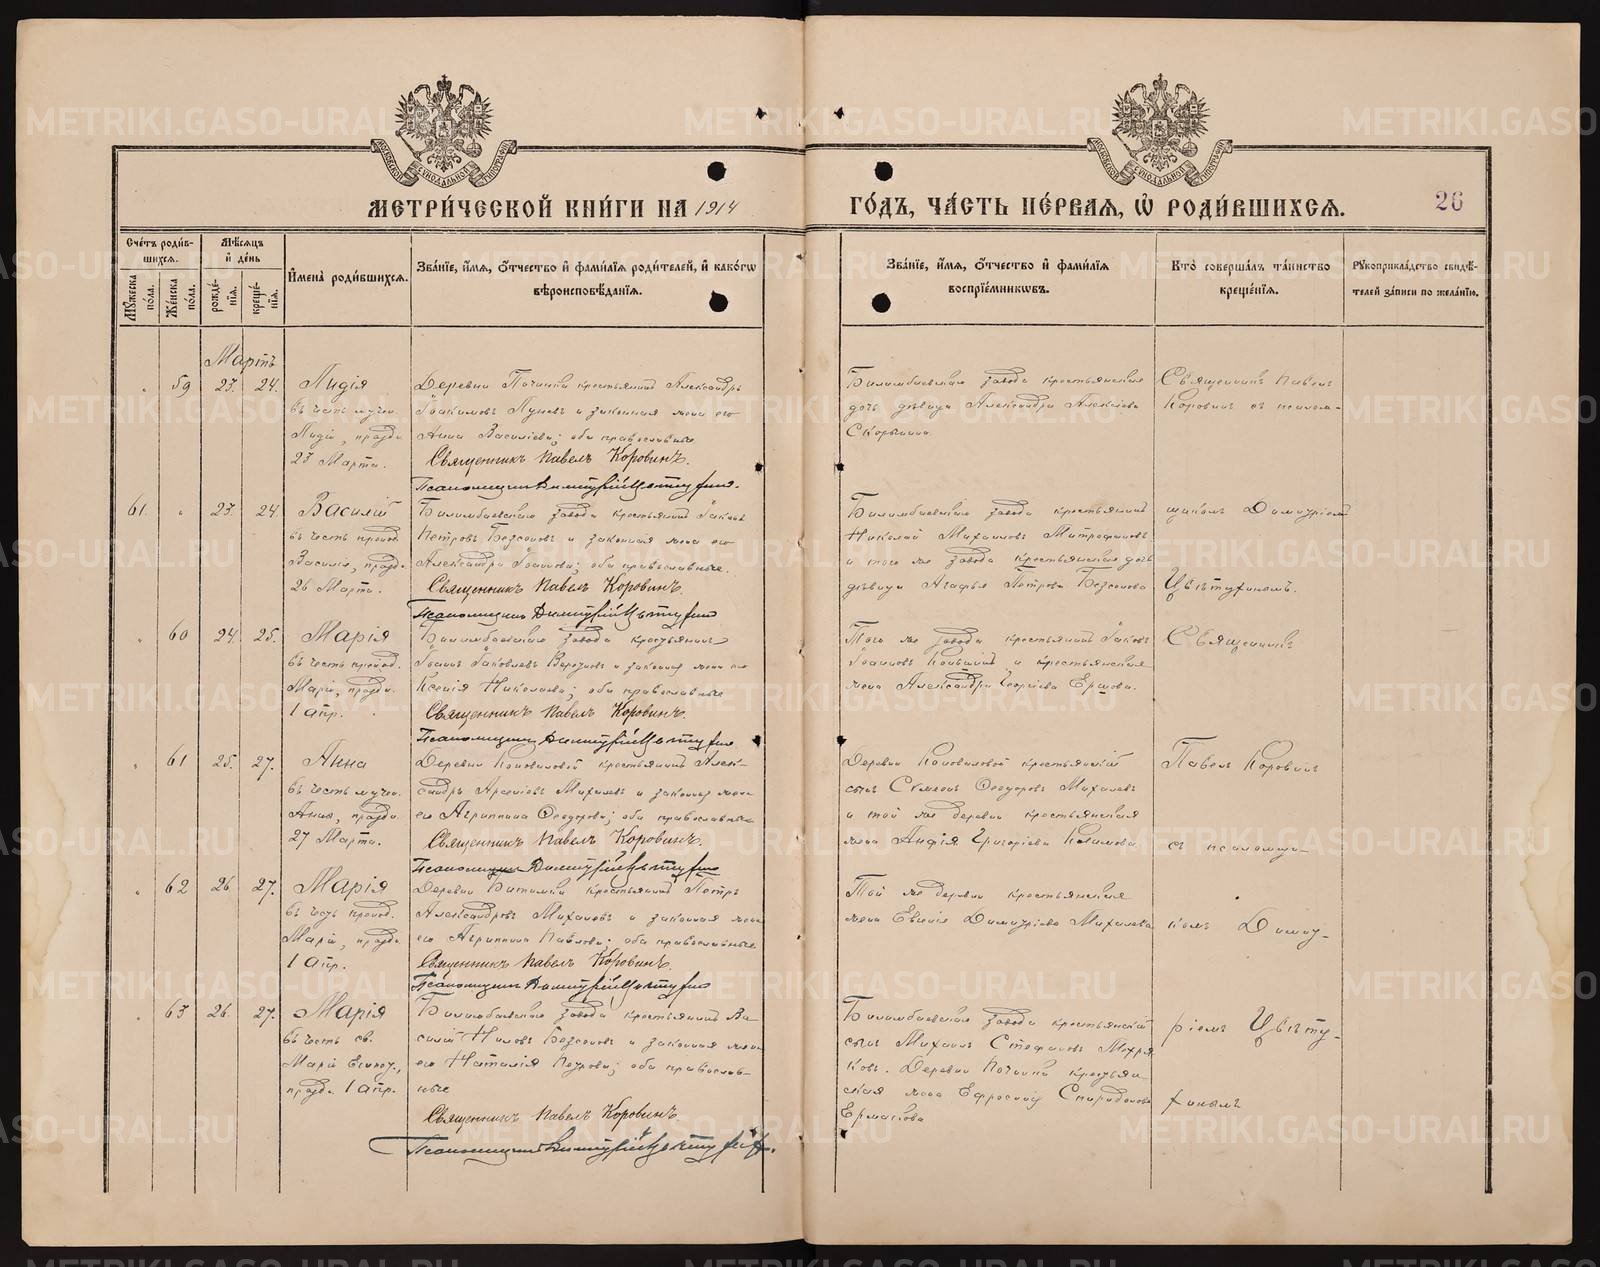 МЕТРИ́ЧЕСКОЙ КНИ́ГИ НА 1914
ГО́ДЪ, ЧА́СТЬ ПЕ́РВАЯ, Ѡ҆ РОДИ́ВШИХСЯ.
26
Сче́тъ роди́в-
шихся.
Мѣ́сяцъ
и҆ де́нь
Мꙋ́жеска по́ла.
Же́нска по́ла.
рожде́-
нїя.
креще́-
нїя.
И҆мена̀ роди́вшихся.
Зва́нїе, и҆́мя, ѻ҆́тчество и҆ фами́лїя роди́телей, и҆ како́гѡ
вѣроисповѣ́данїя.
Зва́нїе, и҆́мя, ѻ҆́тчество и҆ фами́лїя
восприе́мникѡвъ.
Кто̀ соверша́лъ та́инство
креще́нїя.
Рꙋкоприкла́дство свидѣ́-
телей за́писи по жела́нїю.
Мартъ
59 23. 24. Лидія
въ честь мучен.
Лидіи, праздн.
23 Марта.
Деревни Починка крестьянинъ Александръ
Іоакимовъ Пуневъ и законная жена его
Анна Василіева; оба православные
Священникъ Павелъ Коровинъ.
Псаломщикъ Димитрій Цвѣтухинъ.
Билимбаевскаго завода крестьянская
дочь дѣвица Александра Алексѣева
Скорынина.
Священникъ Павелъ
Коровинъ съ псалом-
61. 23. 24. Василій
въ честь препод.
Василія, праздн.
26 Марта.
Билимбаевскаго завода крестьянинъ Іаковъ
Петровъ Безсоновъ и законная жена его
Александра Іоаннова; оба православные.
Священникъ Павелъ Коровинъ.
Псаломщикъ Димитрій Цвѣтухинъ
Билимбаевскаго завода крестьянинъ
Николай Михаиловъ Митрофановъ
и того же завода крестьянская дочь
дѣвица Агафья Петрова Безсонова
щикомъ Димитріемъ
Цвѣтухинымъ.
60 24. 25. Марія
въ честь препод.
Маріи, праздн.
1 Апр.
Билимбаевскаго завода крестьянинъ
Іоаннъ Іаковлевъ и законная жена его
Ксенія Николаева; оба православные
Священникъ Павелъ Коровинъ.
Псаломщикъ Димитрій Цвѣтухинъ
Того же завода крестьянинъ Іаковъ
Іоанновъ и крестьянская
жена Александра Георгіева Ершова.
Священникъ
61 25. 27. Анна
въ честь мучен.
Анны, праздн.
27 Марта.
Деревни Коноваловой крестьянинъ Алек-
сандръ Арсеніевъ Михалевъ и законная жена
его Агриппина Ѳеодорова; оба православные
Священникъ Павелъ Коровинъ.
Псаломщикъ Димитрій Цвѣтухинъ
Деревни Коноваловой крестьянскій
сынъ Сѵмеонъ Ѳеодоровъ Михалевъ
и той же деревни крестьянская
жена Григоріева
Павелъ Коровинъ
съ псаломщи-
62 26 27. Марія
въ честь препод.
Маріи, праздн.
1 Апр.
Деревни Битимки крестьянинъ Петръ
Александровъ Михалевъ и законная жена
его Агриппина Павлова; оба православные
Священникъ Павелъ Коровинъ.
Псаломщикъ Димитрій Цвѣтухинъ
Той же деревни крестьянская
жена Евгенія Димитріева Михалева
комъ Димит-
63 26. 27. Марія
въ честь св.
Маріи Египет.,
праздн. 1 Апр.
Билимбаевскаго завода крестьянинъ Ва-
силій Ниловъ Безсоновъ и законная жена
его Наталія Петрова; оба православ-
ные
Священникъ Павелъ Коровинъ
Псаломщикъ Димитрій Цвѣтухинъ.
Билимбаевскаго завода крестьянскій
сынъ Михаилъ Стефановъ Мокря-
ковъ. Деревни Починка крестьян-
ская жена Ефросинія Спиридонова
Ермакова
ріемъ Цвѣту-
хинымъ
METRIKI.GASO-URAL.RU